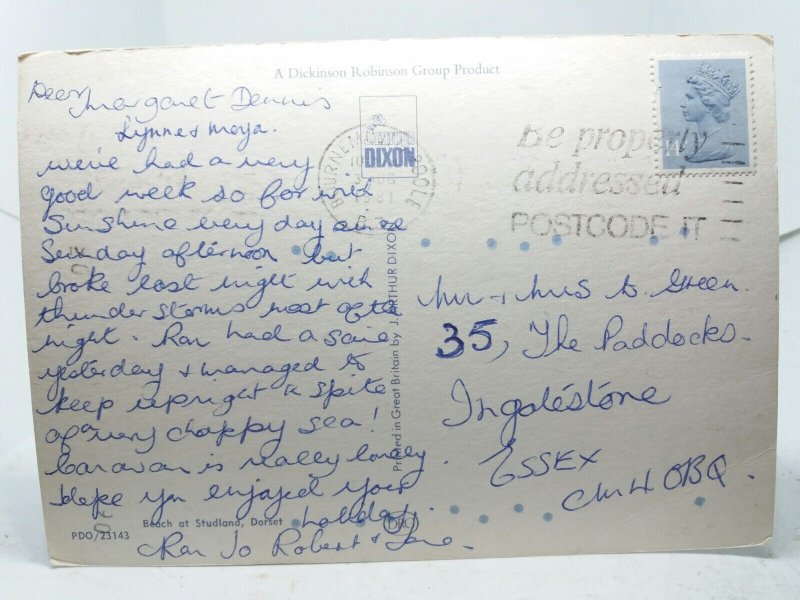 A Dickinson Robinson Group Product
Dear Margaret Dennis
Lynne & Moya.
we've had a very
good week so far with
Sunshine every day since
Sunday afternoon but
broke last night with
thunder storms most of the
night. Ran had a
yesterday & managed to
keep upright in spite
of a very choppy sea!
Caravan is really lovely.
Hope you enjoyed your
holiday.
Ran Jo Robert &
Beach at Studland, Dorset
PDO/23143
DRG
Printed in Great Britain by J. ARTHUR DIXON
DIXON
Be properly
addressed
POSTCODE IT
Mr & Mrs D. Green.
35, The Paddocks.
Ingatestone
ESSEX
CM4 0BQ.